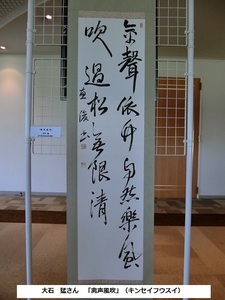 禽聲依竹自然樂風
吹過松無限清
大石 猛さん 「禽声風吹」 (キンセイフウスイ)